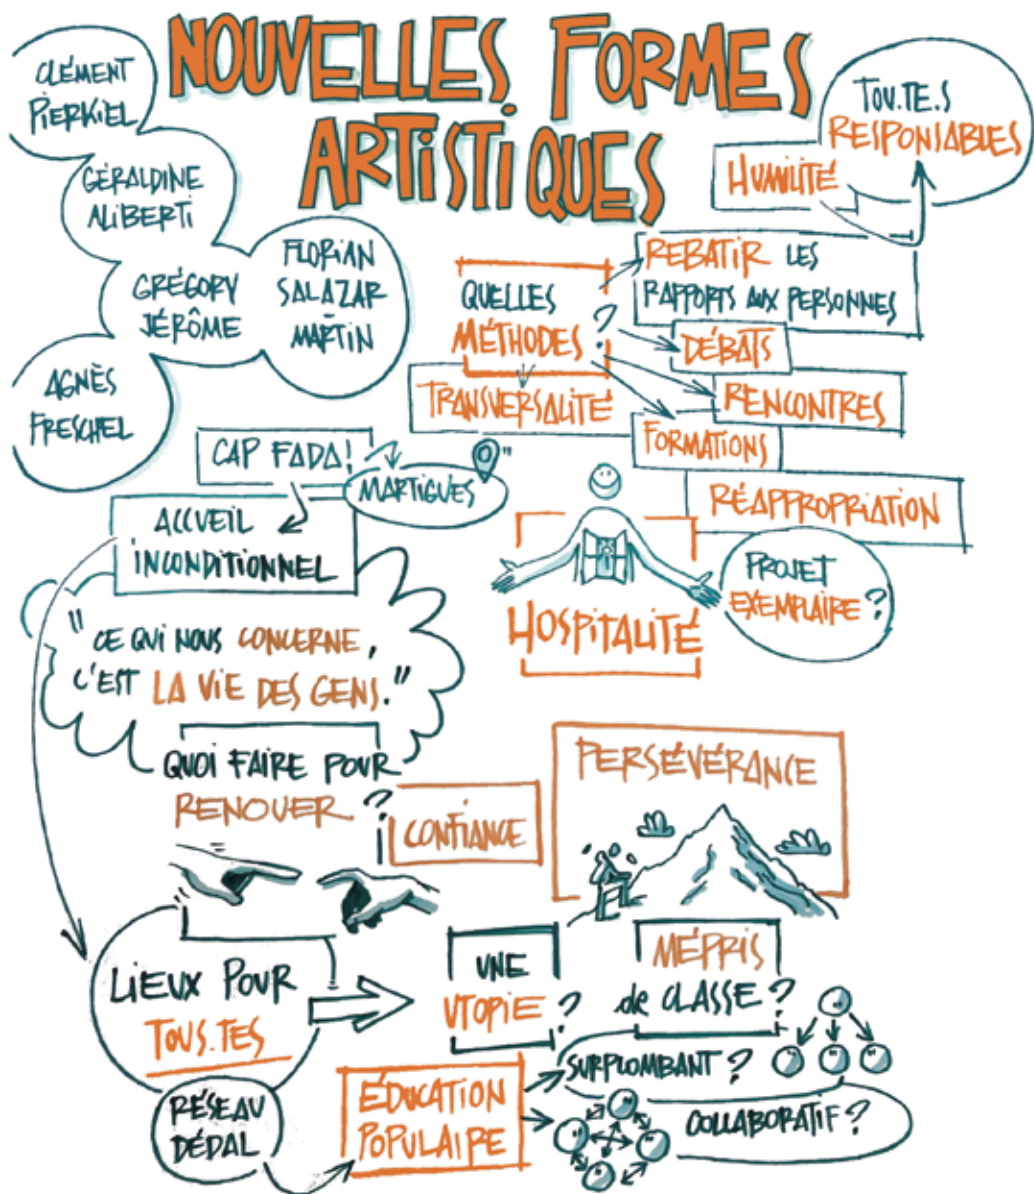 NOUVELLES FORMES
ARTISTIQUES
CLÉMENT
PIERKIEL
GÉRALDINE
ALIBERTI
GRÉGORY
JÉRÔME
FLORIAN
SALAZAR
-
MARTIN
AGNÈS
FRESCHEL
TOU.TE.S
RESPONSABLES
HUMILITÉ
QUELLES
MÉTHODES ?
REBATIR LES
RAPPORTS AUX PERSONNES
DÉBATS
RENCONTRES
FORMATIONS
TRANSVERSALITÉ
RÉAPPROPRIATION
CAP FADA !
MARTIGUES
ACCUEIL
INCONDITIONNEL
HOSPITALITÉ
PROJET
EXEMPLAIRE ?
"CE QUI NOUS CONCERNE,
C'EST LA VIE DES GENS."
QUOI FAIRE POUR
RENOUER ?
CONFIANCE
PERSÉVÉRANCE
LIEUX POUR
TOUS.TES
UNE
UTOPIE ?
MÉPRIS
de CLASSE ?
RÉSEAU
DÉDAL
ÉDUCATION
POPULAIRE
SURPLOMBANT ?
COLLABORATIF ?